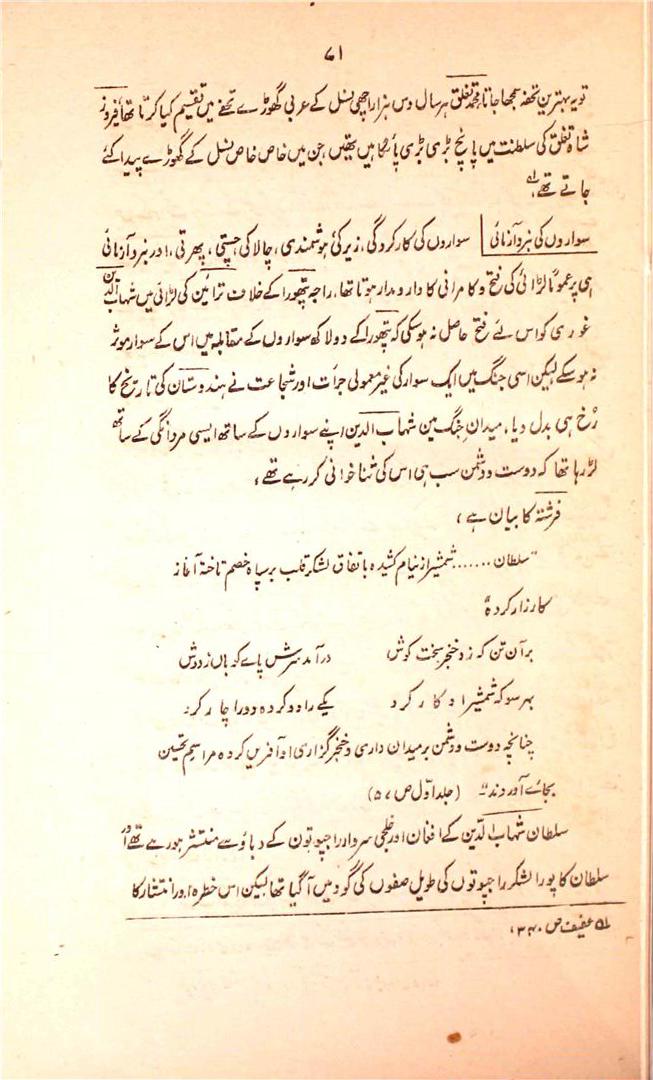 ۷۱
تو یہ بہترین تحفہ سمجھا جاتا، محمد تغلق ہر سال دس ہزار اچھی نسل کے عربی گھوڑے تحفے میں تقسیم کیا کرتا تھا، فیروز
شاہ تغلق کی سلطنت میں پانچ بڑی بڑی پائگاہیں تھیں، جن میں خاص خاص نسل کے گھوڑے پیدا کئے
جاتے تھے، لہ
سواروں کی نبرد آزمائی سواروں کی کارکردگی، زیرکی، ہوشمندی، چالاکی، چستی، پھرتی، اور نبرد آزمائی
ہی پر عموماً لڑائی کی فتح و کامرانی کا دار و مدار ہوتا تھا، راجہ پتھورا کے خلاف ترائین کی لڑائی میں شہاب الدین
غوری کو اس لئے فتح حاصل نہ ہوسکی کہ پتھورا کے دو لاکھ سواروں کے مقابلہ میں اس کے سوار موثر
نہ ہوسکے لیکن اسی جنگ میں ایک سوار کی غیر معمولی جرأت اور شجاعت نے ہندوستان کی تاریخ کا
رُخ ہی بدل دیا، میدانِ جنگ مین شہاب الدین اپنے سواروں کے ساتھ ایسی مردانگی کے ساتھ
لڑ رہا تھا کہ دوست و دشمن سب ہی اس کی ثنا خوانی کر رہے تھے،
فرشتہ کا بیان ہے،
"سلطان ....... شمشیر از نیام کشیدہ باتفاق لشکر قلب بر سپاہ خصم تاختہ آغاز
کارزار کردہ"
برآن تن کہ زد خنجر سخت کوش درآمد سرش پاے کوبان ز دوش
بہر سو کہ شمشیر او کار کرد یکے را دو کردہ دو را چار کرد
چنانچہ دوست و دشمن بر میدان داری و خنجر گزاری او آفریں کردہ مراسم تحسین
بجائے آوردند" (جلد اوّل ص ۵۷)
سلطان شہاب الدّین کے افغان اور خلجی سردار راجپوتون کے دباؤ سے منتشر ہو رہے تھے اور
سلطان کا پورا لشکر راجپوتوں کی طویل صفوں کی گود میں آگیا تھا لیکن اس خطرہ اور انتشار کا
لہ عفیف ص ۳۴۰،